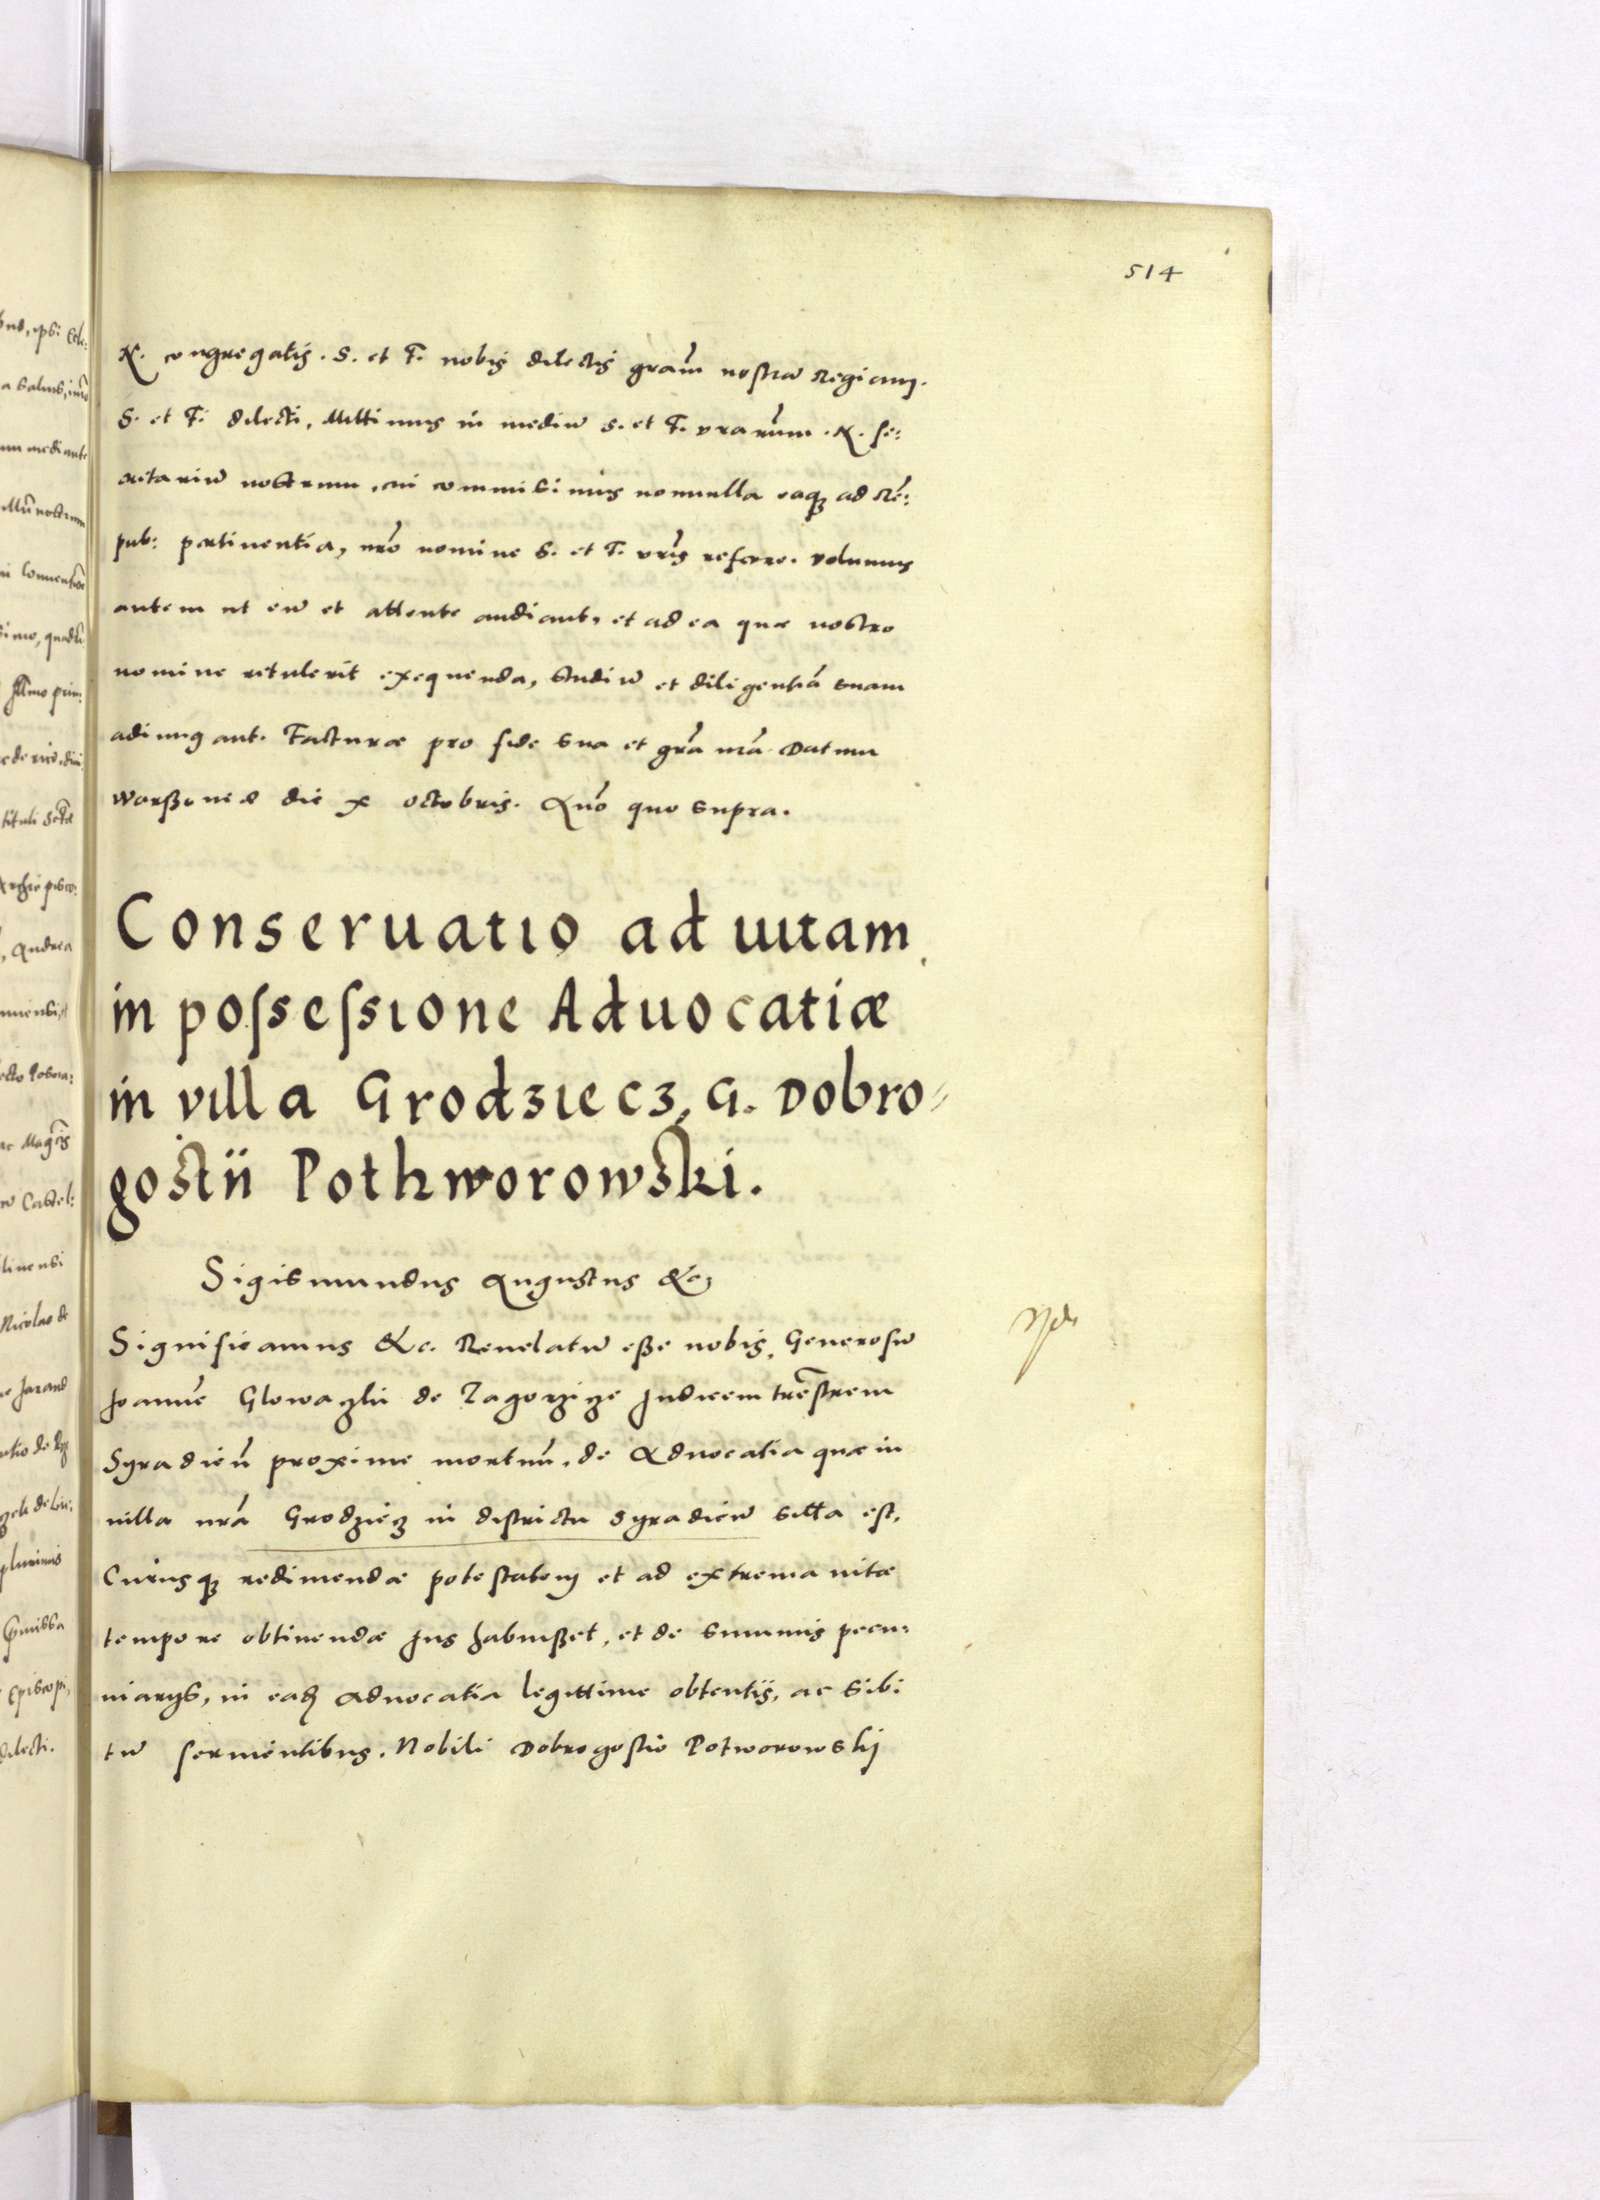 514
N. congregatis. S. et F. nobis dilectis gratiam nostram Regiam.
S. et F. dilecti, Mittimus in mediū S. et F. vrarum. N. se:
cretariū nostrum, cui commisimus nonnulla eaque ad Rē:
pub: pertinentia, nrō nomine S. et F. vris referre. Volumus
autem ut eū et attente audiant, et ad ea quæ nostro
nomine retulerit exequenda, studiū et diligentiā suam
adiungant. Facturæ pro fide sua et grā nrā. Datum
Warssoviæ die x octobris. Anō quo supra.
Conseruatio ad uitam
in possessione Aduocatiæ
in villa Grodziecz, G. Dobro=
gostii Pothworowski.
Sigismundus Augustus &c
Significamus &c. Revelatū esse nobis, Generosū
Joannē Glowaczki de Zagorzicze Judicem trrēstrem
Syradieñ proxime mortuū, de Aduocatia quæ in
uilla nrā Grodziecz in districtu Syradieñ sita est,
Cuiusque redimendæ potestatem et ad extrema uitæ
tempore obtinendæ Jus habuisset, et de summis pecu:
niarijs, in eadem Aduocatia legittime obtentis, ac sibi
tū seruientibus. Nobili Dobrogostio Potworowskj